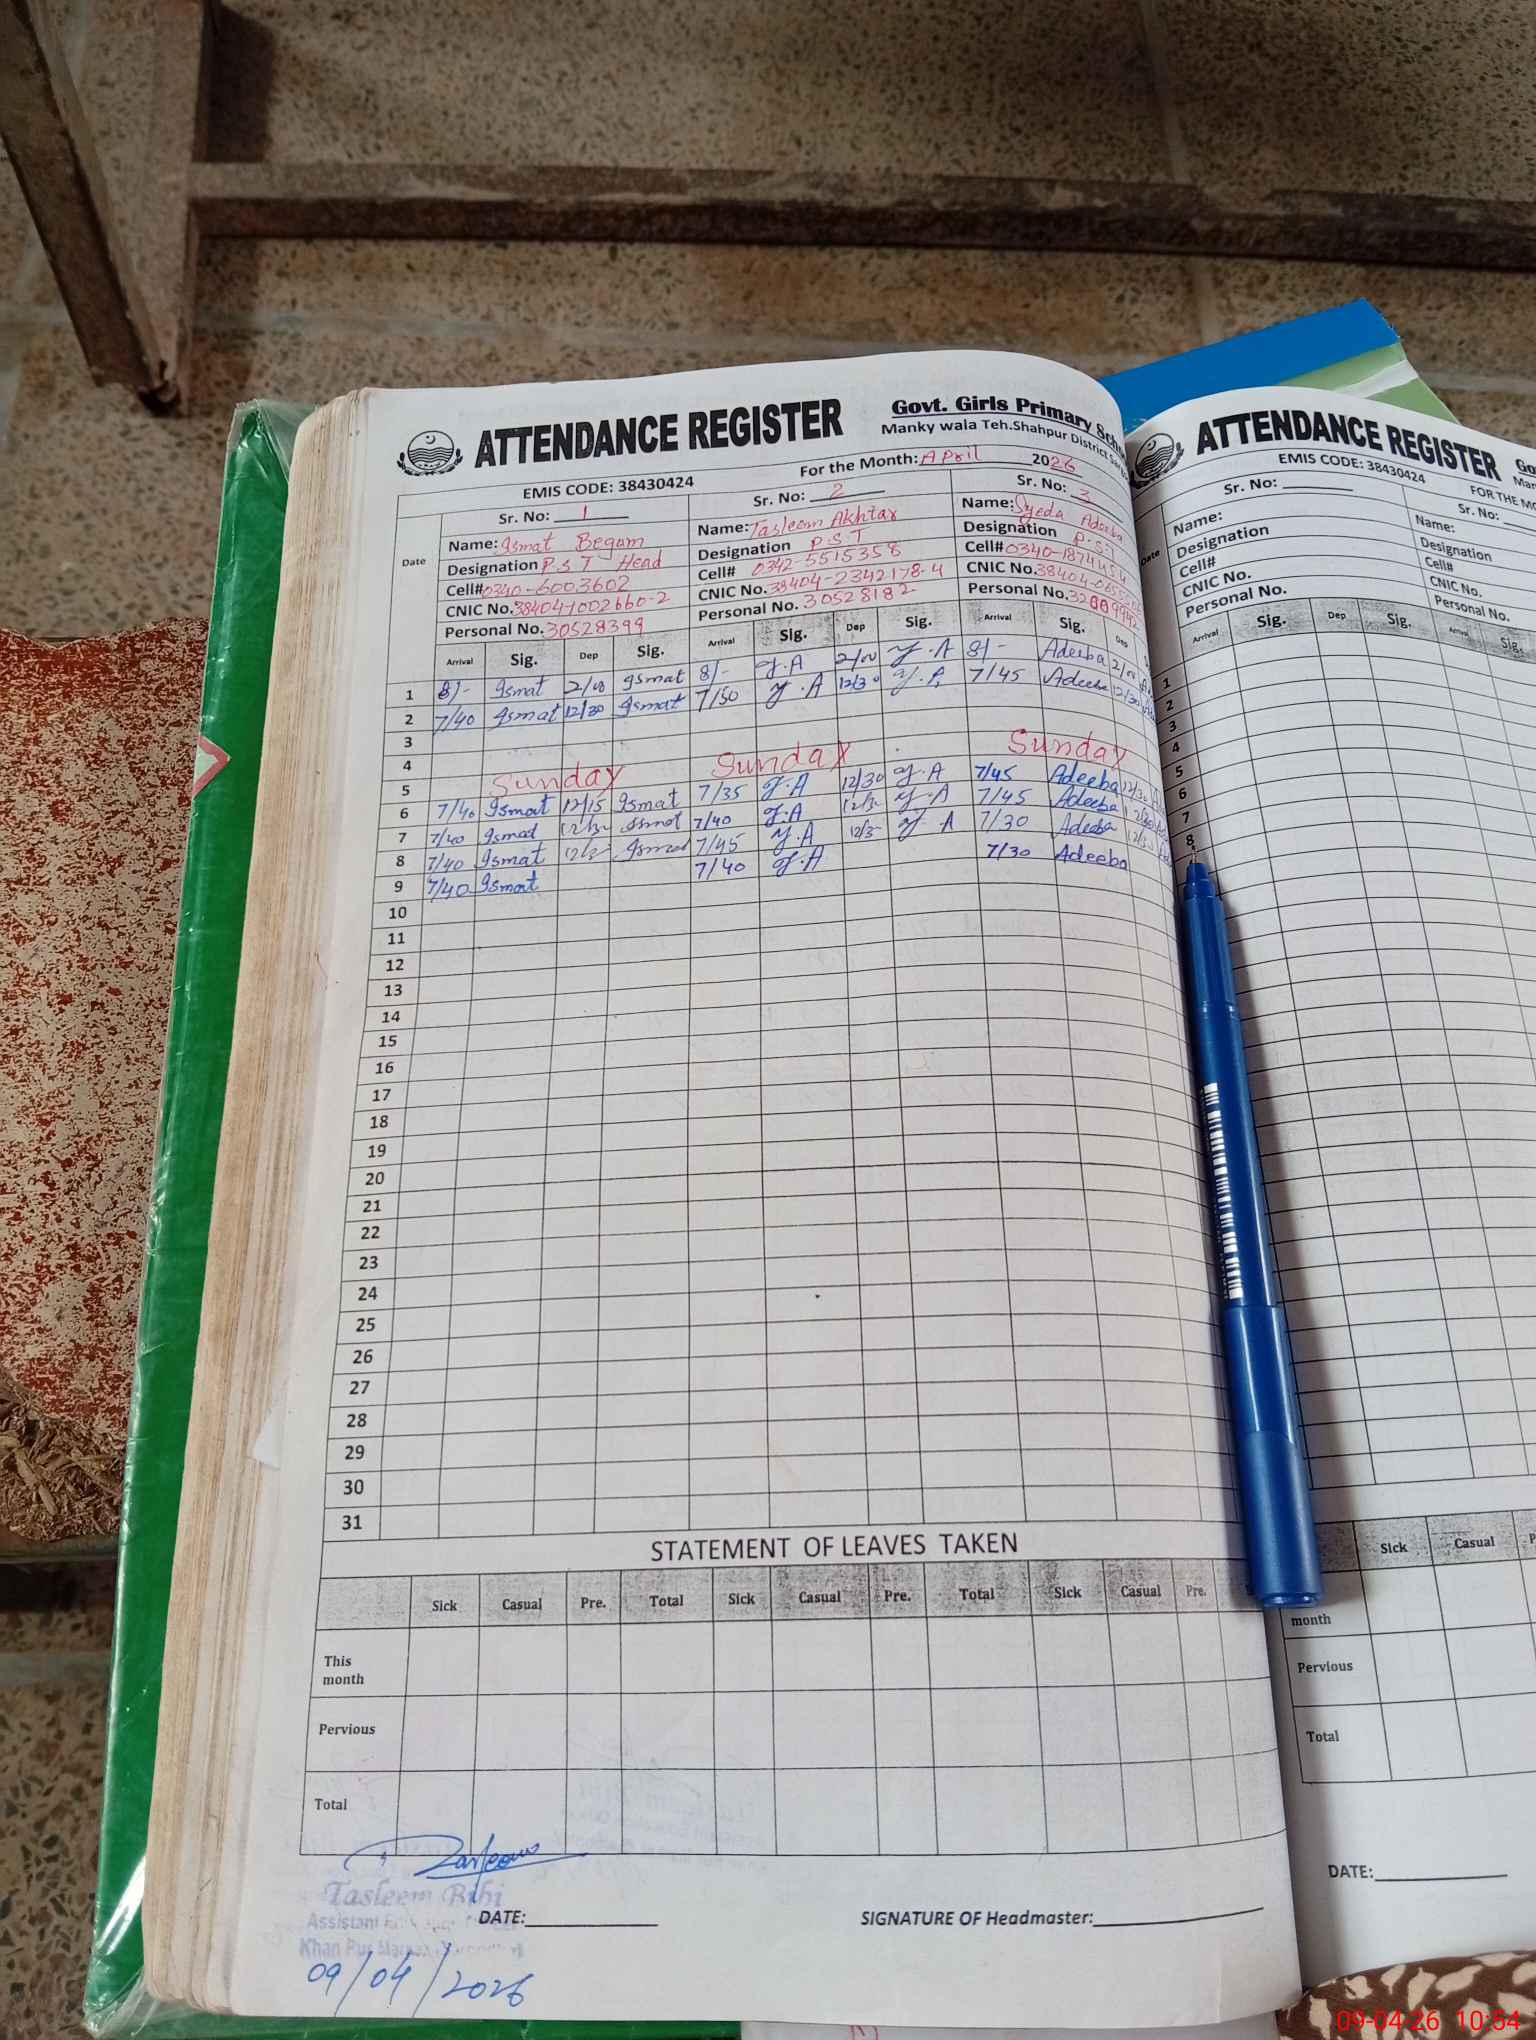 ATTENDANCE REGISTER
Govt. Girls Primary
Manky wala Teh.Shahpur District
EMIS CODE: 38430424
For the Month: April 2026
Date
Sr. No: 1
Sr. No: 2
Sr. No: 3
Name: Ismat Begum
Name: Tasleem Akhtar
Name: Syeda Adeeba
Designation P.S.T Head
Designation P.S.T
Designation P.S.T
Cell# 0340-6003602
Cell# 0342-5515358
Cell# 0340-1874454
CNIC No. 38404-1002660-2
CNIC No. 38404-2342178-4
CNIC No. 38404-
Personal No. 30528399
Personal No. 30528182
Personal No.
Arrival Sig. Dep Sig. Arrival Sig. Dep Sig. Arrival Sig. Dep
1 8/- Ismat 2/00 Ismat 8/- 2/00 8/- Adeeba 2/00
2 7/40 Ismat 12/30 Ismat 7/50 12/30 7/45 Adeeba 12/30
3
4
5 Sunday Sunday Sunday
6 7/40 Ismat 12/15 Ismat 7/35 12/30 7/45 Adeeba 12/30
7 7/40 Ismat Ismat 7/40 7/45 Adeeba
8 7/40 Ismat Ismat 7/45 7/30 Adeeba
9 7/40 Ismat 7/40 7/30 Adeeba
10
11
12
13
14
15
16
17
18
19
20
21
22
23
24
25
26
27
28
29
30
31
STATEMENT OF LEAVES TAKEN
Sick Casual Pre. Total Sick Casual Pre. Total Sick Casual Pre.
This month
Pervious
Total
Tasleem Bibi
Assistant
Khan Pur
09/04/2026
DATE:
SIGNATURE OF Headmaster:
ATTENDANCE REGISTER
EMIS CODE: 38430424
FOR THE
Sr. No:
Sr. No:
Date
Name:
Name:
Designation
Designation
Cell#
Cell#
CNIC No.
CNIC No.
Personal No.
Personal No.
Arrival Sig. Dep Sig. Arrival Sig.
1
2
3
4
5
6
7
8
Sick Casual
month
Pervious
Total
DATE:
09-04-26 10:54